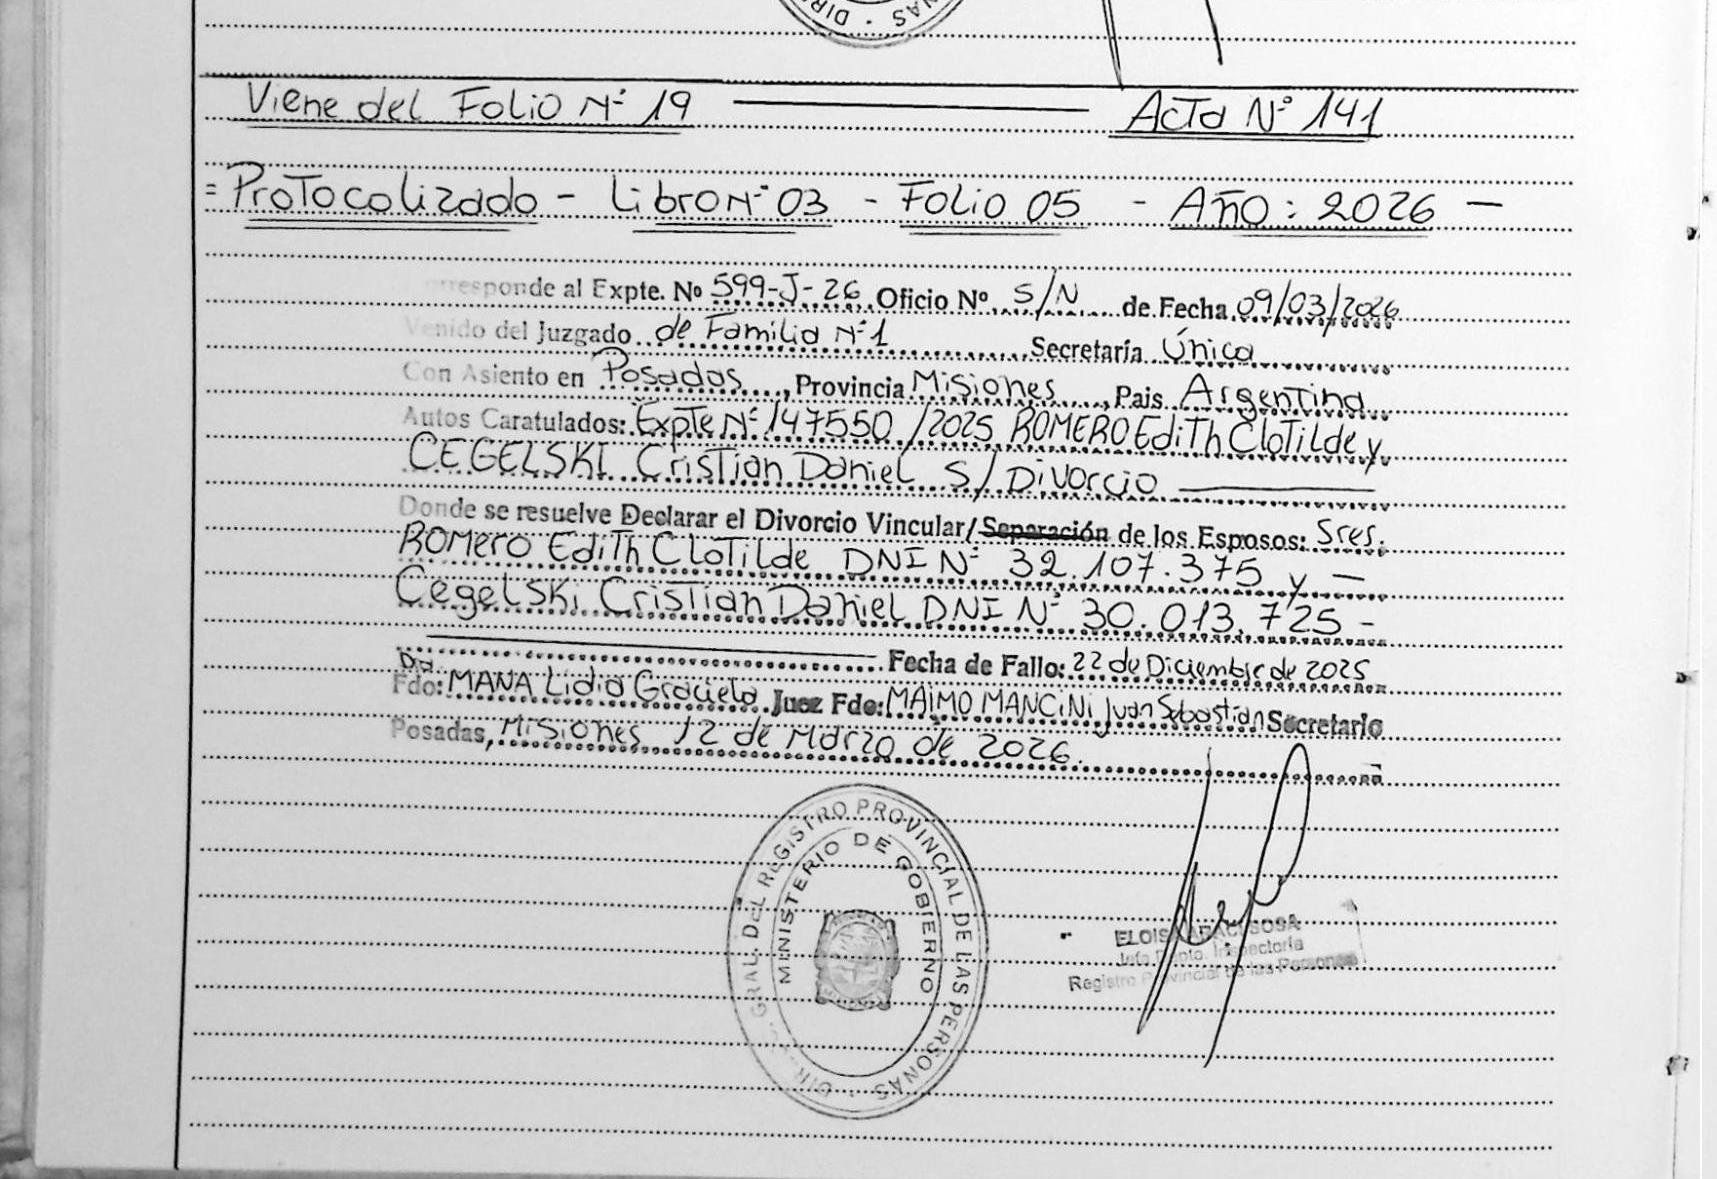 DIR
NAS
Viene del Folio N° 19 Acta N° 141
= Protocolizado - Libro N° 03 - Folio 05 - Año: 2026 -
responde al Expte. Nº 599-J-26 Oficio Nº S/N de Fecha 09/03/2026
Venido del Juzgado de Familia N°1 Secretaría Única
Con Asiento en Posadas, Provincia Misiones, Pais Argentina
Autos Caratulados: Expte N° 147550/2025 ROMERO Edith Clotilde y
CEGELSKI Cristian Daniel S/ Divorcio
Donde se resuelve Declarar el Divorcio Vincular/Separación de los Esposos: Sres.
Romero Edith Clotilde DNI N° 32.107.375 y -
Cegelski Cristian Daniel DNI N° 30.013.725 -
Fecha de Fallo: 22 de Diciembre de 2025
Dra.
Fdo: MANA Lidia Graciela Juez Fdo: MAIMO MANCINI Juan Sebastian Secretario
Posadas, Misiones 12 de Marzo de 2026.
GRAL. DEL REGISTRO PROVINCIAL DE LAS PERSONAS · DIR.
MINISTERIO DE GOBIERNO
SOSA
Jefa Dpto. Inspectoría
Registro Provincial de las Personas